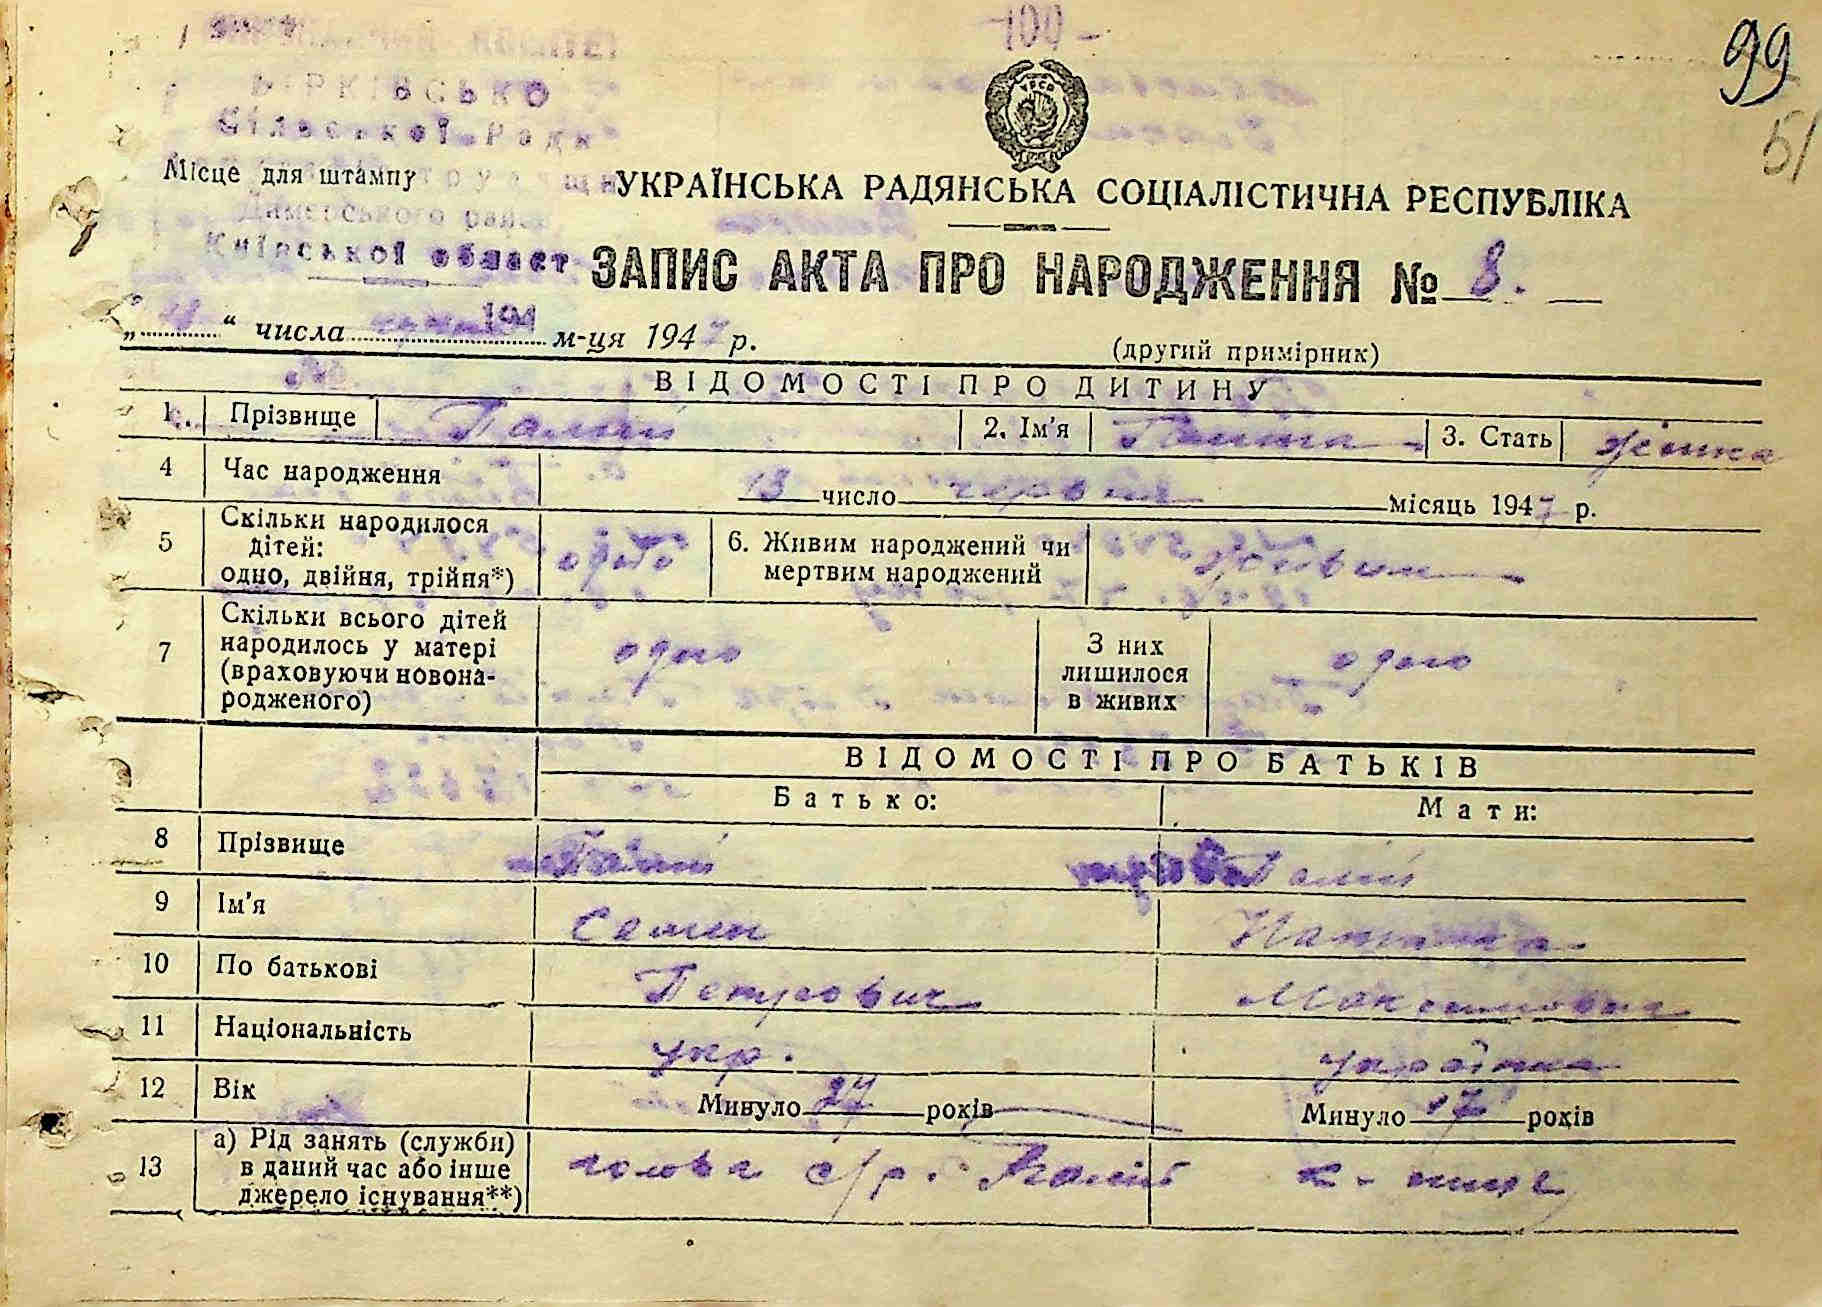 99
51
БІРКІВСЬКО
Сільської Ради
Місце для штампу
Димерського район
Київської област
УКРАЇНСЬКА РАДЯНСЬКА СОЦІАЛІСТИЧНА РЕСПУБЛІКА
ЗАПИС АКТА ПРО НАРОДЖЕННЯ № 8.
„ “ числа м-ця 1947 р.
(другий примірник)
ВІДОМОСТІ ПРО ДИТИНУ
1. Прізвище Палій 2. Ім'я Ганна 3. Стать жінка
4 Час народження 13 число червня місяць 1947 р.
5 Скільки народилося дітей: одно, двійня, трійня*) одно 6. Живим народжений чи мертвим народжений Живим
7 Скільки всього дітей народилось у матері (враховуючи новонародженого) одно З них лишилося в живих одно
ВІДОМОСТІ ПРО БАТЬКІВ
Батько: Мати:
8 Прізвище Палій Палій
9 Ім'я Семен Наталка
10 По батькові Петрович Максимовна
11 Національність укр. українка
12 Вік Минуло 27 років Минуло 17 років
13 а) Рід занять (служби) в даний час або інше джерело існування**) голова с/р. к-ниця